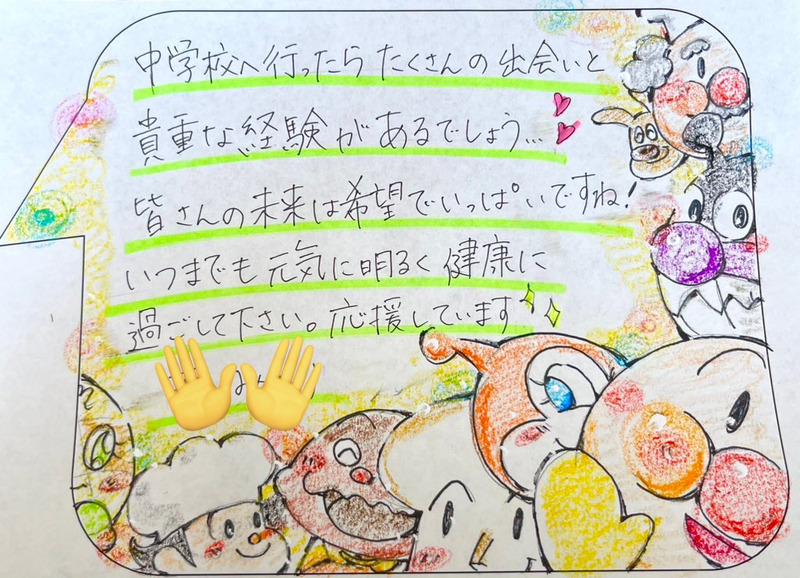 中学校へ行ったら たくさんの出会いと
貴重な経験があるでしょう…
皆さんの未来は希望でいっぱいですね!
いつまでも元気に明るく健康に
過ごして下さい。応援しています